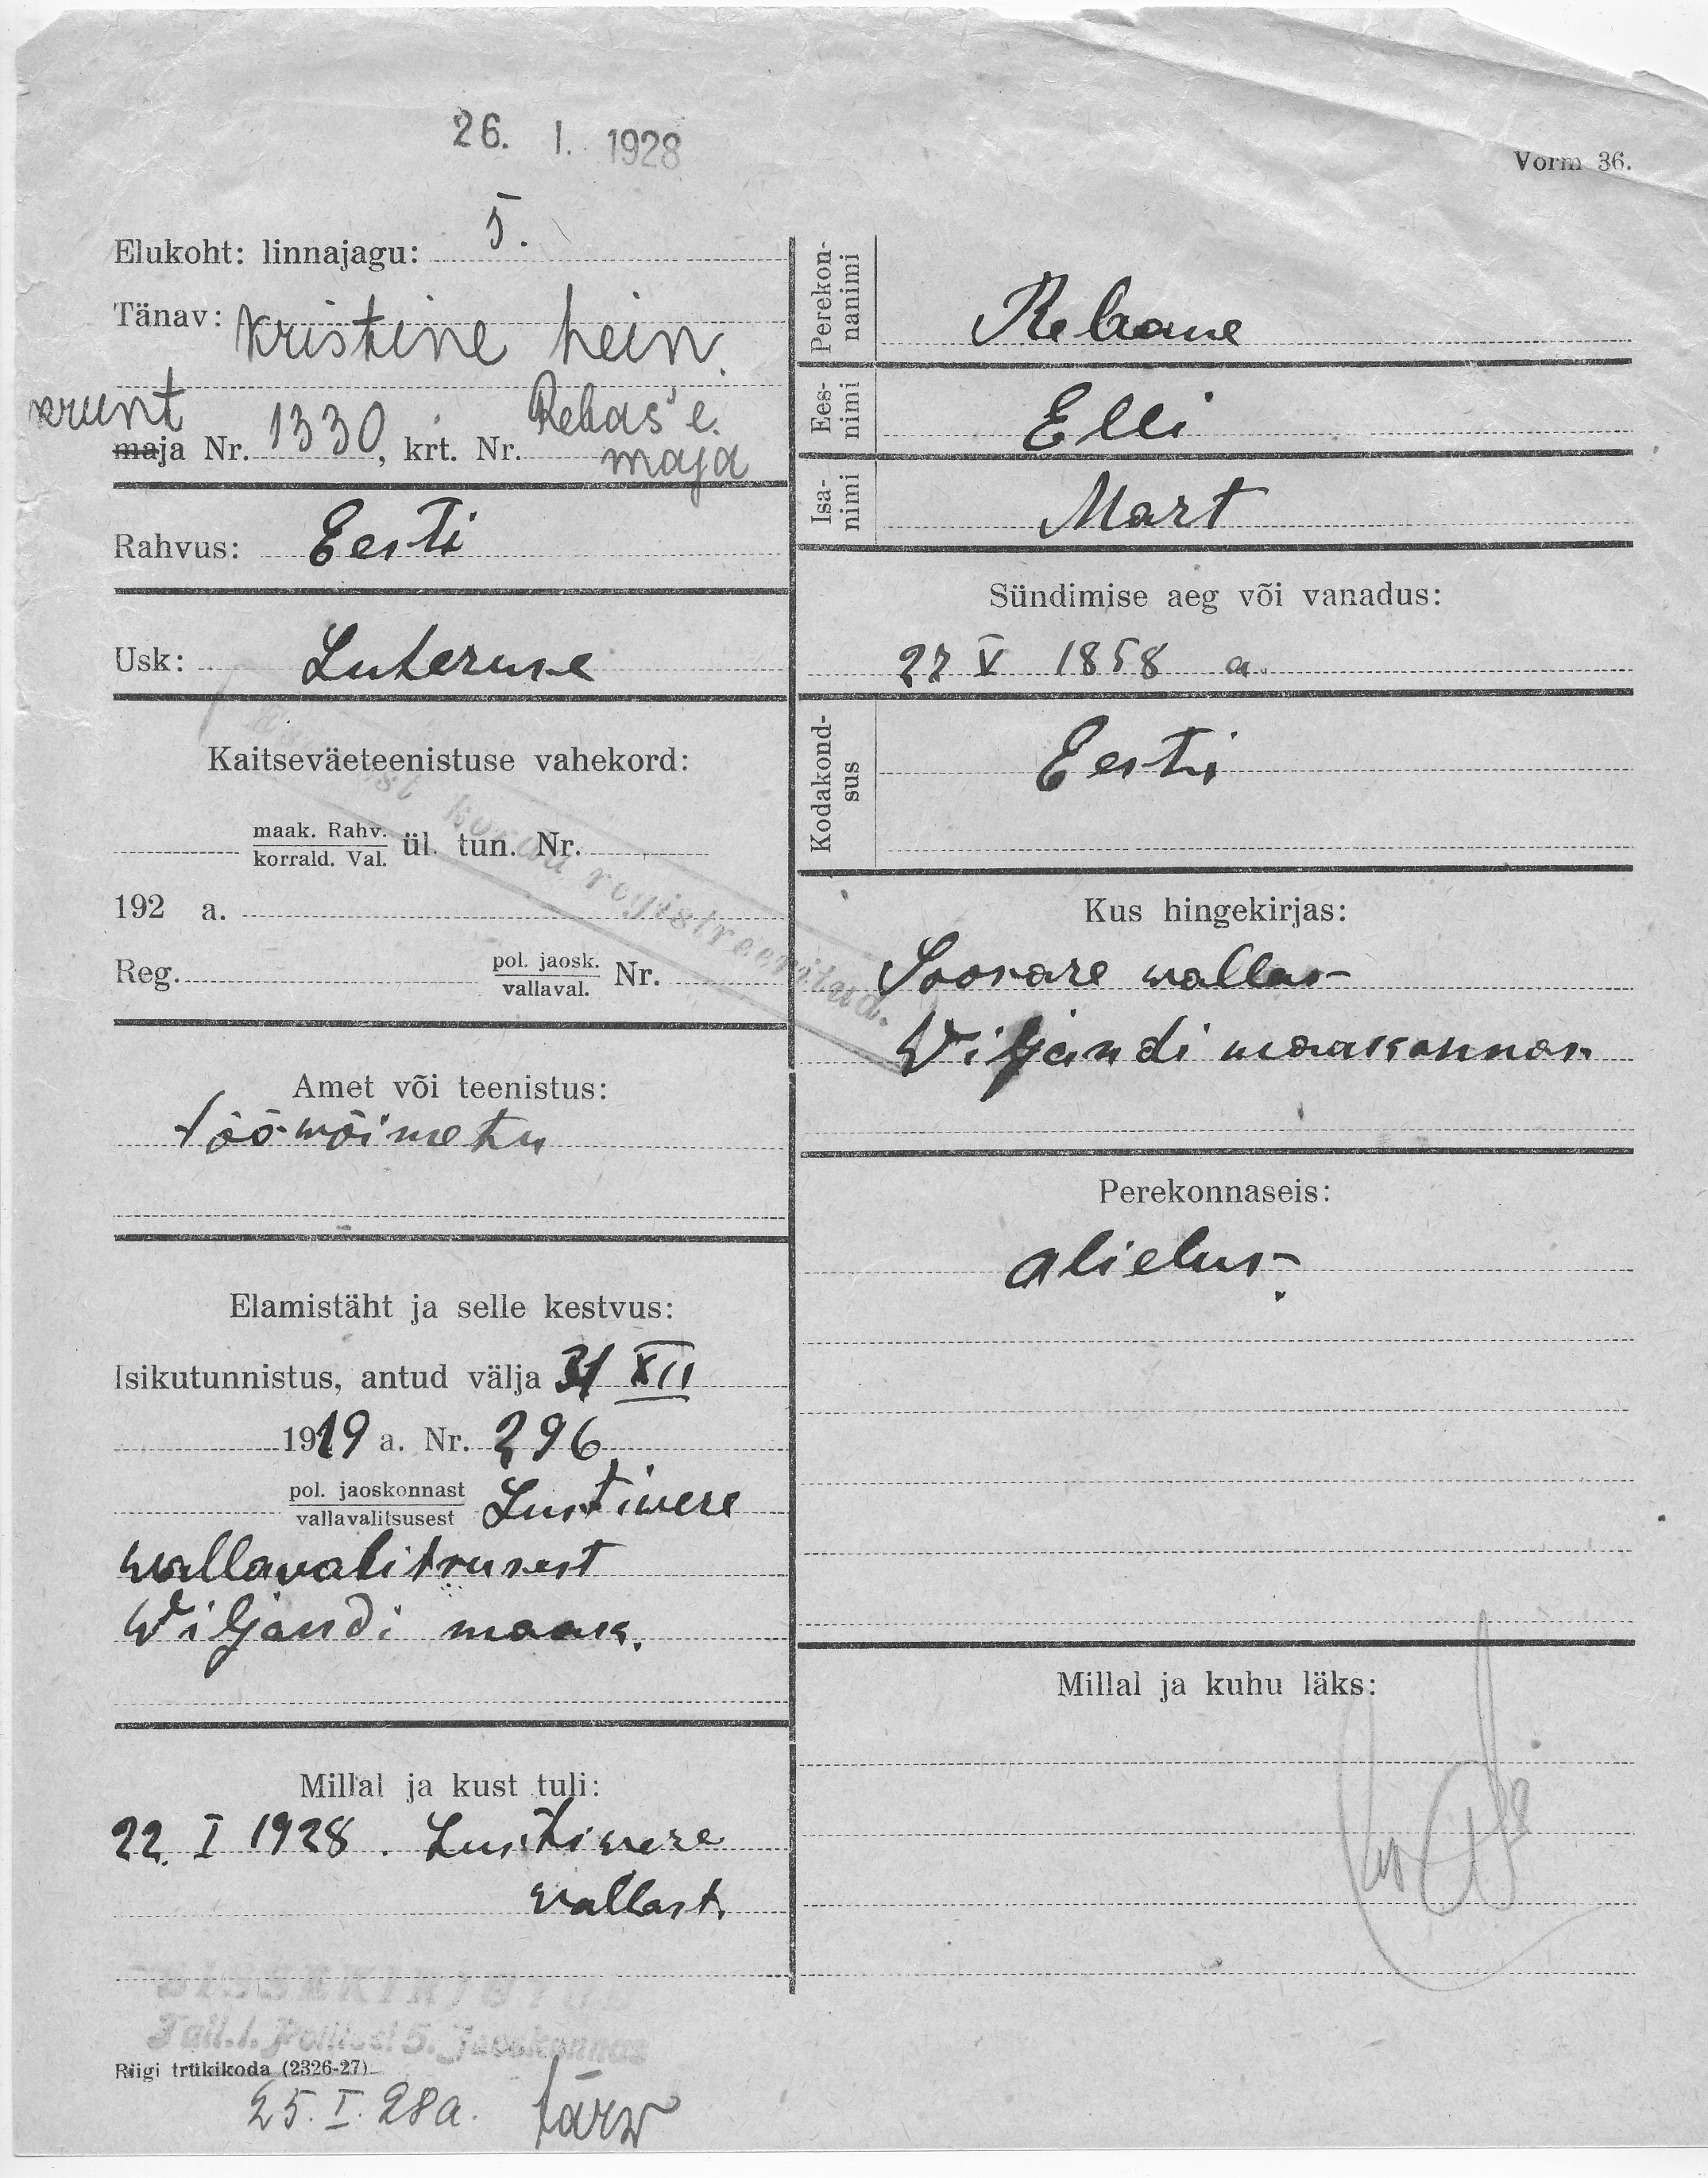 26. I. 1928
Vorm 36.
Elukoht: linnajagu: 5.
Tänav: Kristine hein.
krunt
maja Nr. 1330, krt. Nr. Rebas'e.
maja
Rahvus: Eesti
Usk: Luteruse
Kaitseväeteenistuse vahekord:
maak. Rahv.
korrald. Val. ül. tun. Nr.
192 a.
Reg. pol. jaosk.
vallaval. Nr.
korda registreeritud.
Amet või teenistus:
töövõimetu
Elamistäht ja selle kestvus:
Isikutunnistus, antud välja 31 XII
1919 a. Nr. 296
pol. jaoskonnast
vallavalitsusest Lustiwere
wallavalitsusest
Wiljandi maak.
Millal ja kust tuli:
22. I 1928. Lustiwere
vallast.
SISSEKIRJUTUD
Tall.l. Politsei 5. Jaoskonnas
Riigi trükikoda (2326-27)
25. I. 28 a. Järw
Perekon-
nanimi
Rebane
Ees-
nimi
Elli
Isa-
nimi
Mart
Sündimise aeg või vanadus:
27 V 1858 a.
Kodakond-
sus
Eesti
Kus hingekirjas:
Soosare wallas
Wiljandi maakonnas.
Perekonnaseis:
abielus.
Millal ja kuhu läks: